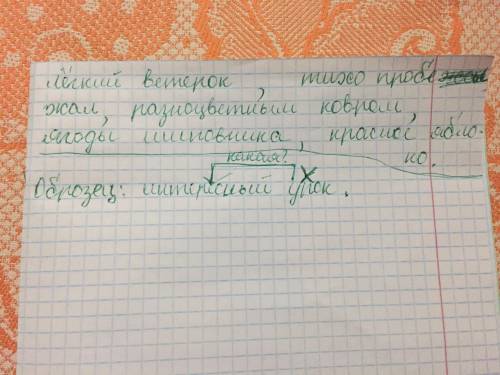 лёгкий ветерок, тихо пробе
жал, разноцветным ковром,
ягоды шиповника, красное ябло-
ко.
какой?
Образец: интересный урок.